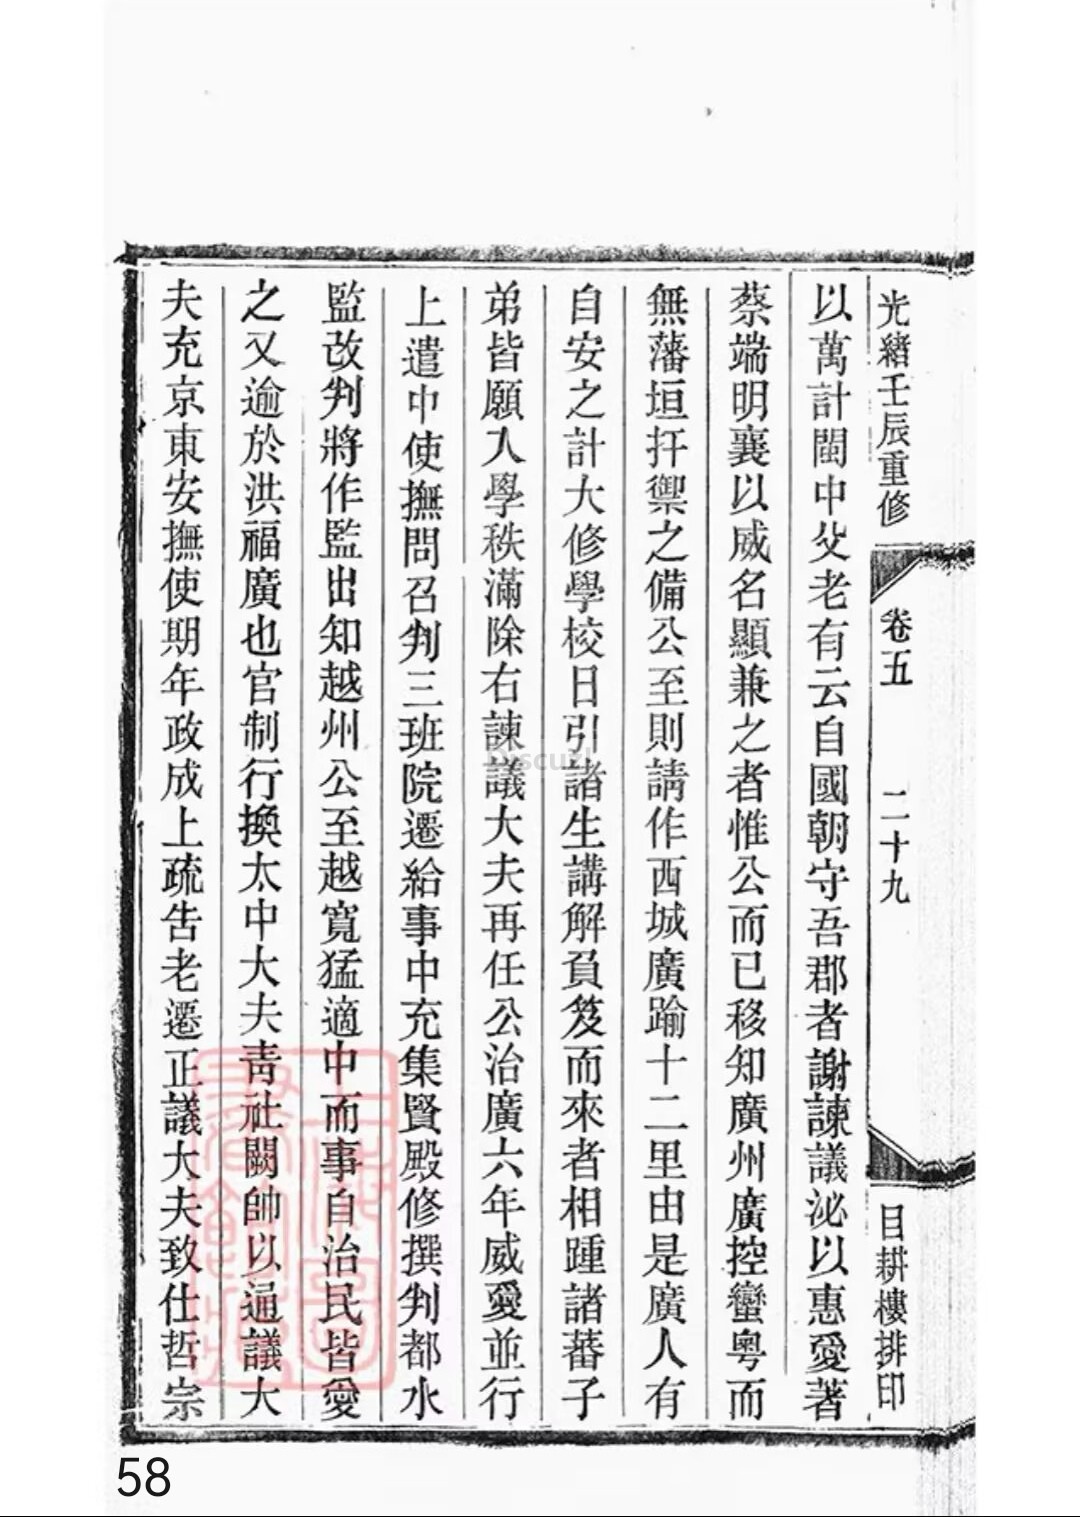 光緒壬辰重修 卷五 二十九 目耕樓排印
以萬計閩中父老有云自國朝守吾郡者謝諫議泌以惠愛著
蔡端明襄以威名顯兼之者惟公而已移知廣州廣控蠻粵而
無藩垣扞禦之備公至則請作西城廣踰十二里由是廣人有
自安之計大修學校日引諸生講解負笈而來者相踵諸蕃子
弟皆願入學秩滿除右諫議大夫再任公治廣六年威愛並行
上遣中使撫問召判三班院遷給事中充集賢殿修撰判都水
監改判將作監出知越州公至越寬猛適中而事自治民皆愛
之又逾於洪福廣也官制行換太中大夫青社闕帥以通議大
夫充京東安撫使期年政成上疏告老遷正議大夫致仕哲宗
Discuz!
上海圖書館藏
58